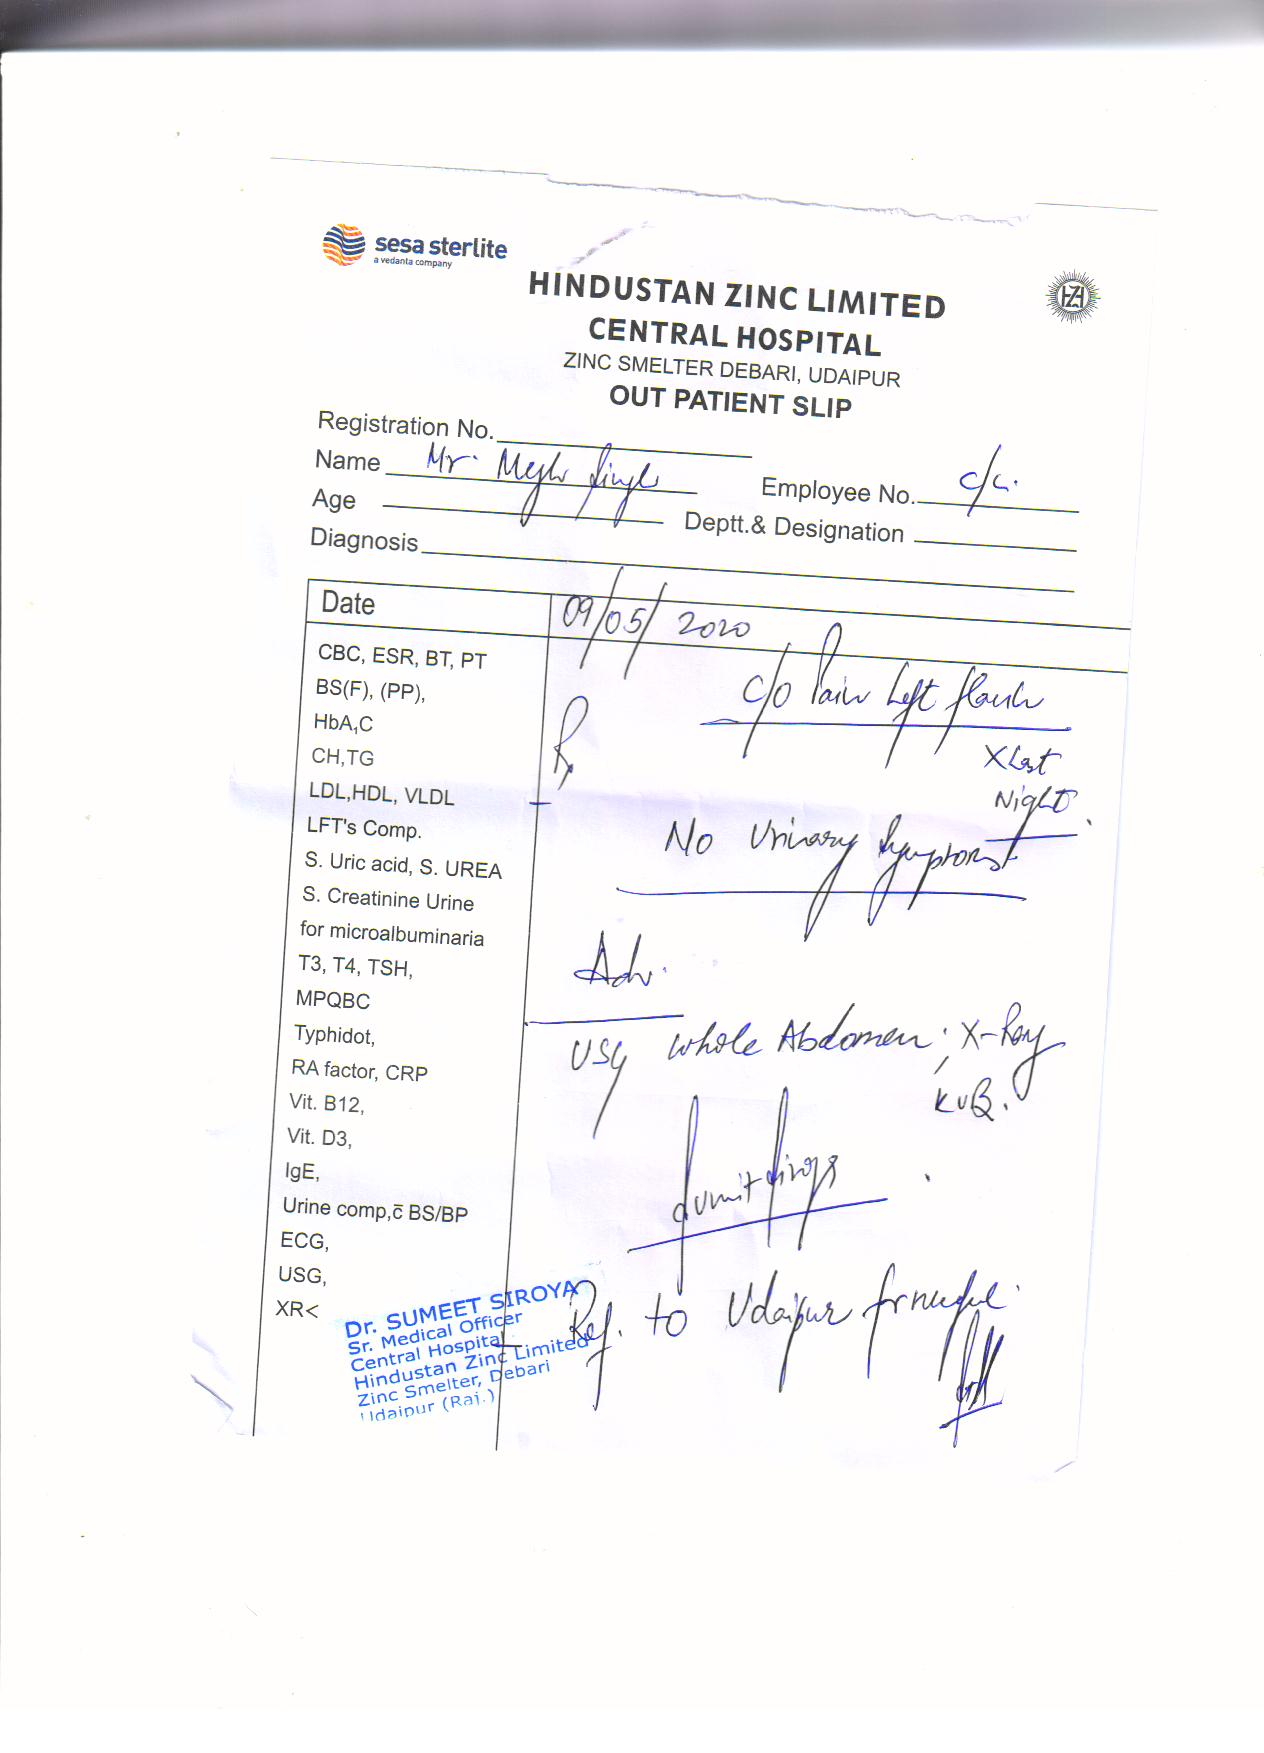 sesa sterlite
a vedanta company
HINDUSTAN ZINC LIMITED
CENTRAL HOSPITAL
ZINC SMELTER DEBARI, UDAIPUR
OUT PATIENT SLIP
Registration No.
Name Mr. Megh Singh Employee No.
Age Deptt.& Designation
Diagnosis
Date 09/05/2020
CBC, ESR, BT, PT
BS(F), (PP),
HbA,C
CH,TG
LDL,HDL, VLDL
LFT's Comp.
S. Uric acid, S. UREA
S. Creatinine Urine
for microalbuminaria
T3, T4, TSH,
MPQBC
Typhidot,
RA factor, CRP
Vit. B12,
Vit. D3,
IgE,
Urine comp,c̄ BS/BP
ECG,
USG,
XR<
C/O Pain Left flank
X Last
Night.
Rx
No Urinary Symptoms
Adv.
USG whole Abdomen, X-Ray
KUB.
Ref. to Udaipur for
Dr. SUMEET SIROYA
Sr. Medical Officer
Central Hospital
Hindustan Zinc Limited
Zinc Smelter, Debari
Udaipur (Raj.)